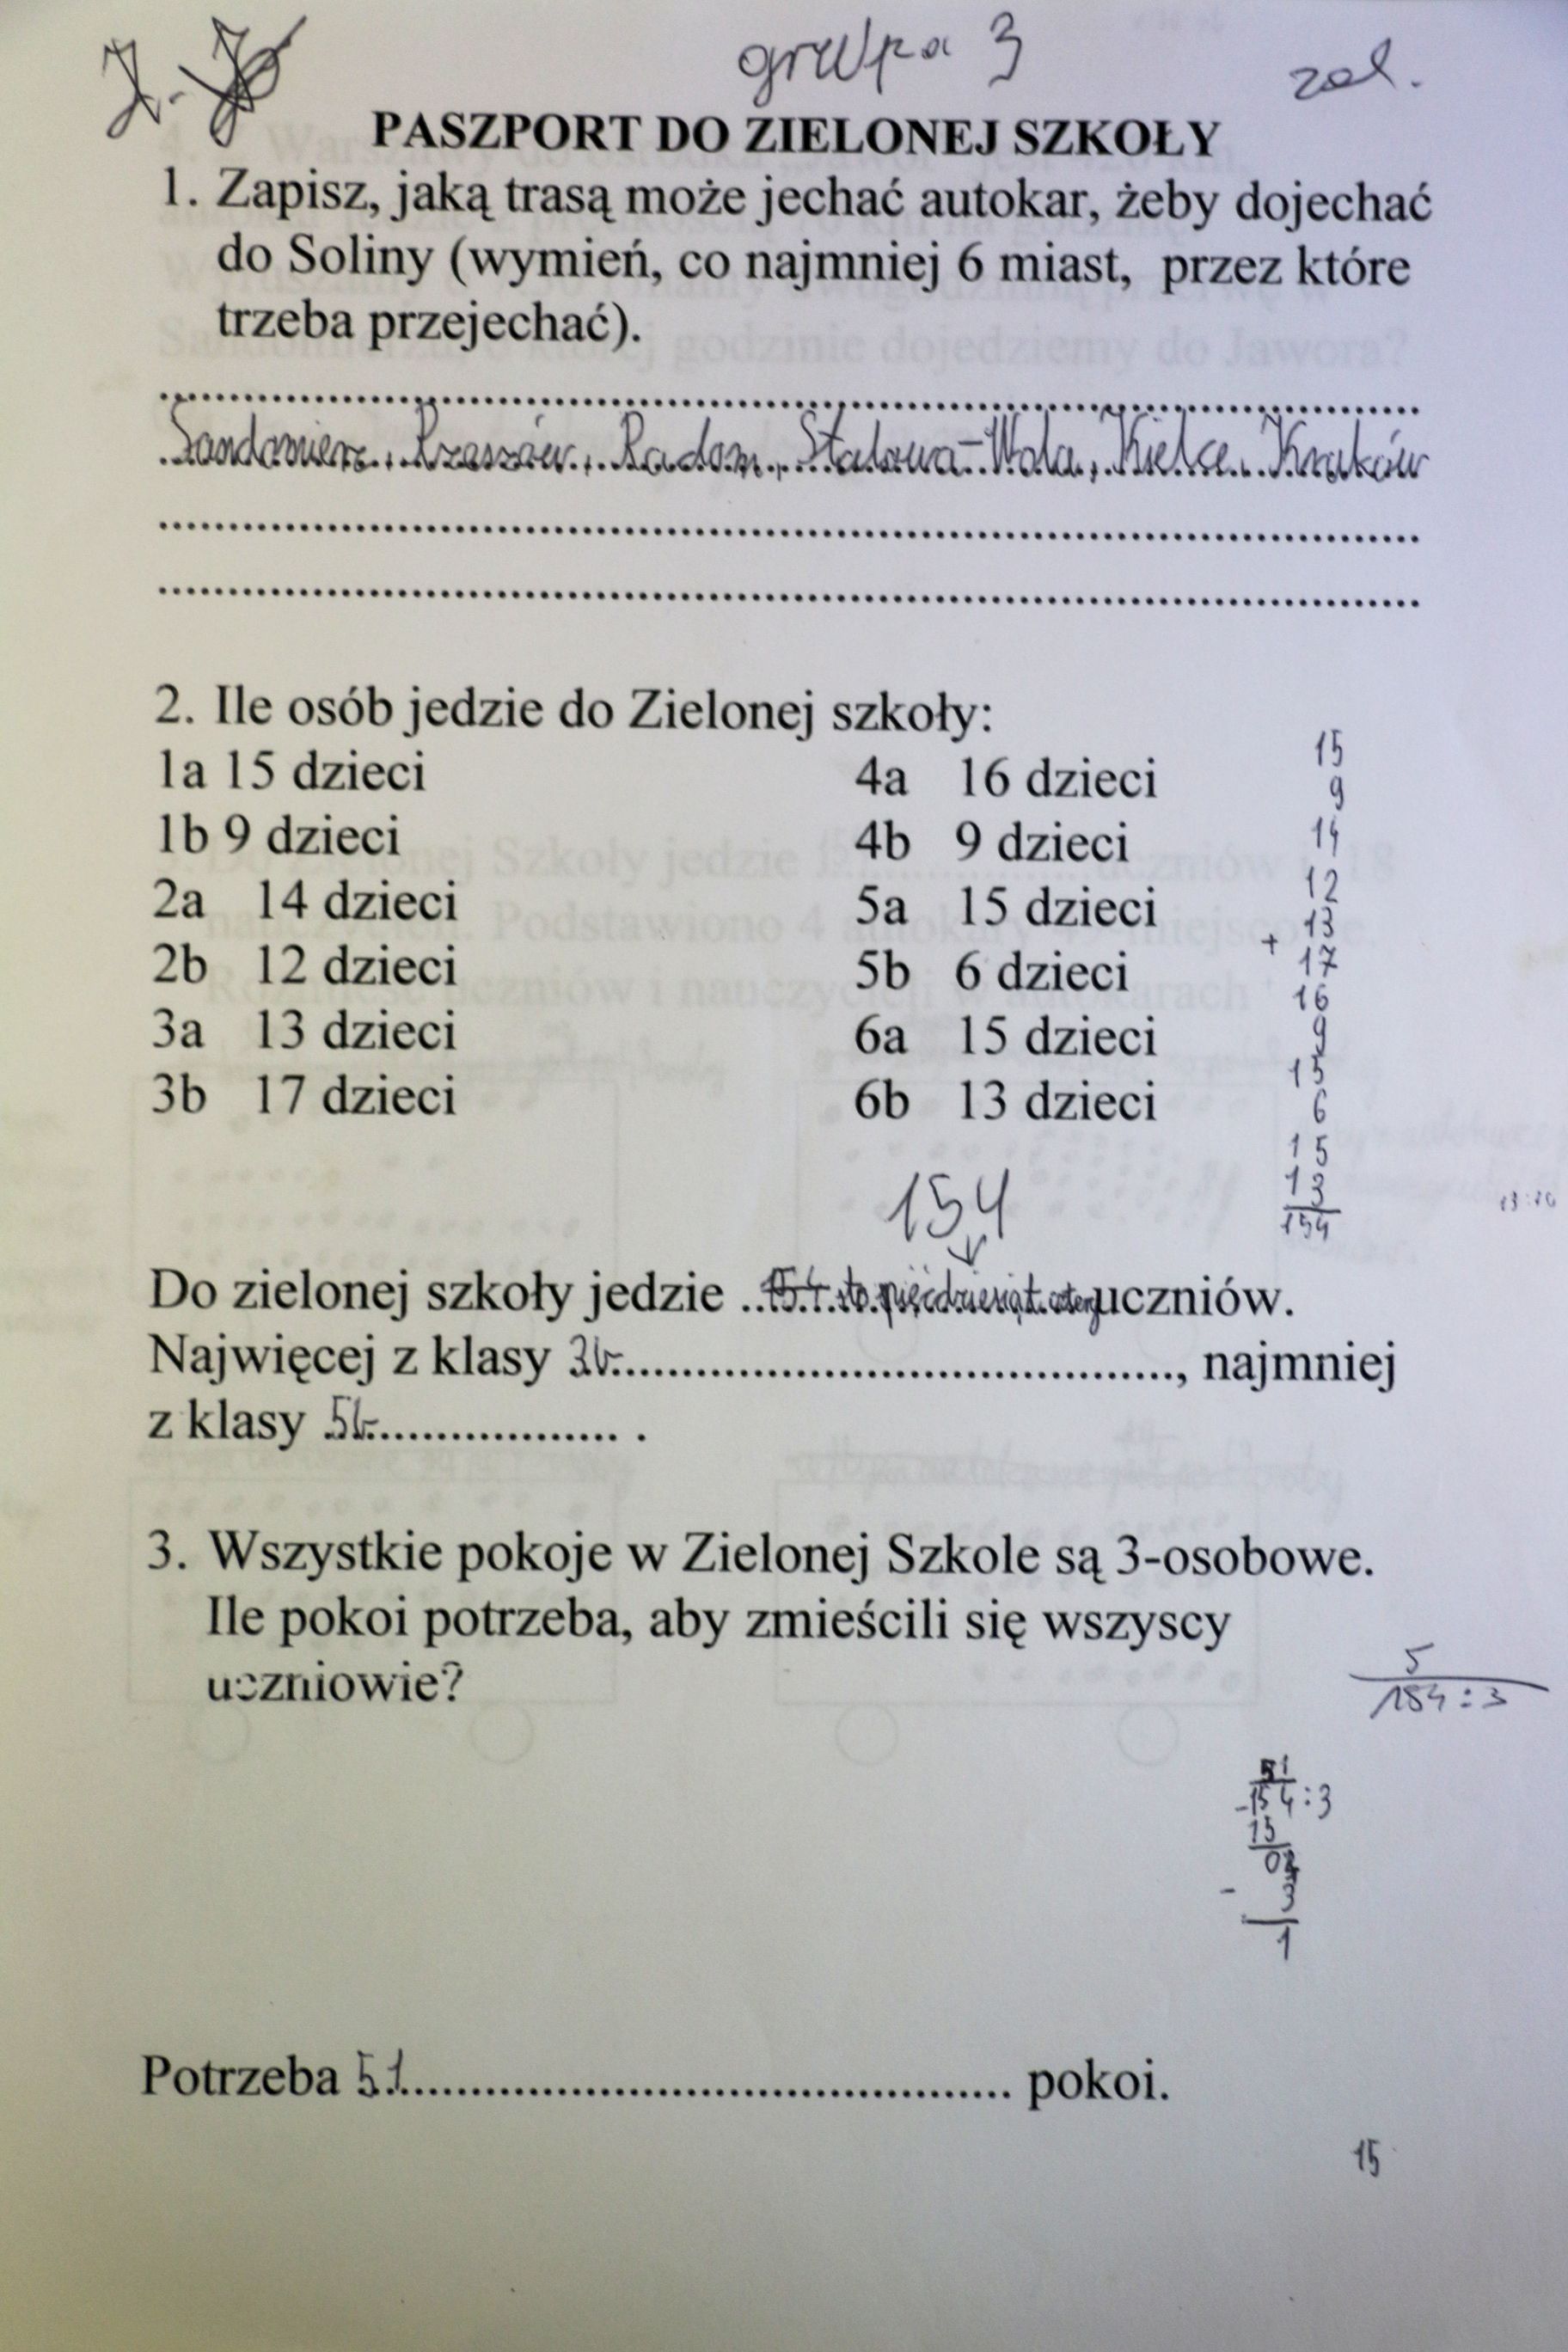 grupa 3 zal.
PASZPORT DO ZIELONEJ SZKOŁY
1. Zapisz, jaką trasą może jechać autokar, żeby dojechać
do Soliny (wymień, co najmniej 6 miast, przez które
trzeba przejechać).
Sandomierz, Rzeszów, Radom, Stalowa-Wola, Kielce, Kraków
2. Ile osób jedzie do Zielonej szkoły:
1a 15 dzieci
1b 9 dzieci
2a 14 dzieci
2b 12 dzieci
3a 13 dzieci
3b 17 dzieci
4a 16 dzieci
4b 9 dzieci
5a 15 dzieci
5b 6 dzieci
6a 15 dzieci
6b 13 dzieci
15
9
14
12
13
+ 17
16
9
15
6
15
13
154
154
Do zielonej szkoły jedzie 154 sto pięćdziesiąt cztery uczniów.
Najwięcej z klasy 3b, najmniej
z klasy 5b.
3. Wszystkie pokoje w Zielonej Szkole są 3-osobowe.
Ile pokoi potrzeba, aby zmieścili się wszyscy
uczniowie?
5
154:3
51
-154:3
15
04
- 3
1
Potrzeba 51 pokoi.
15